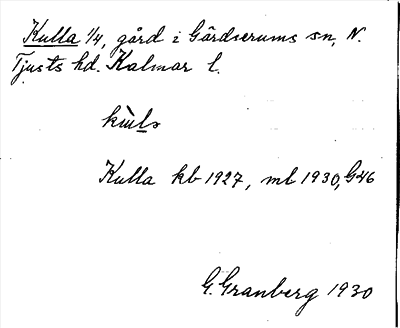 Kulla 1/4, gård i Gärdserums sn, N.
Tjusts hd. Kalmar l.
Kulla kb 1927, mb 1930, G46
G. Granberg 1930